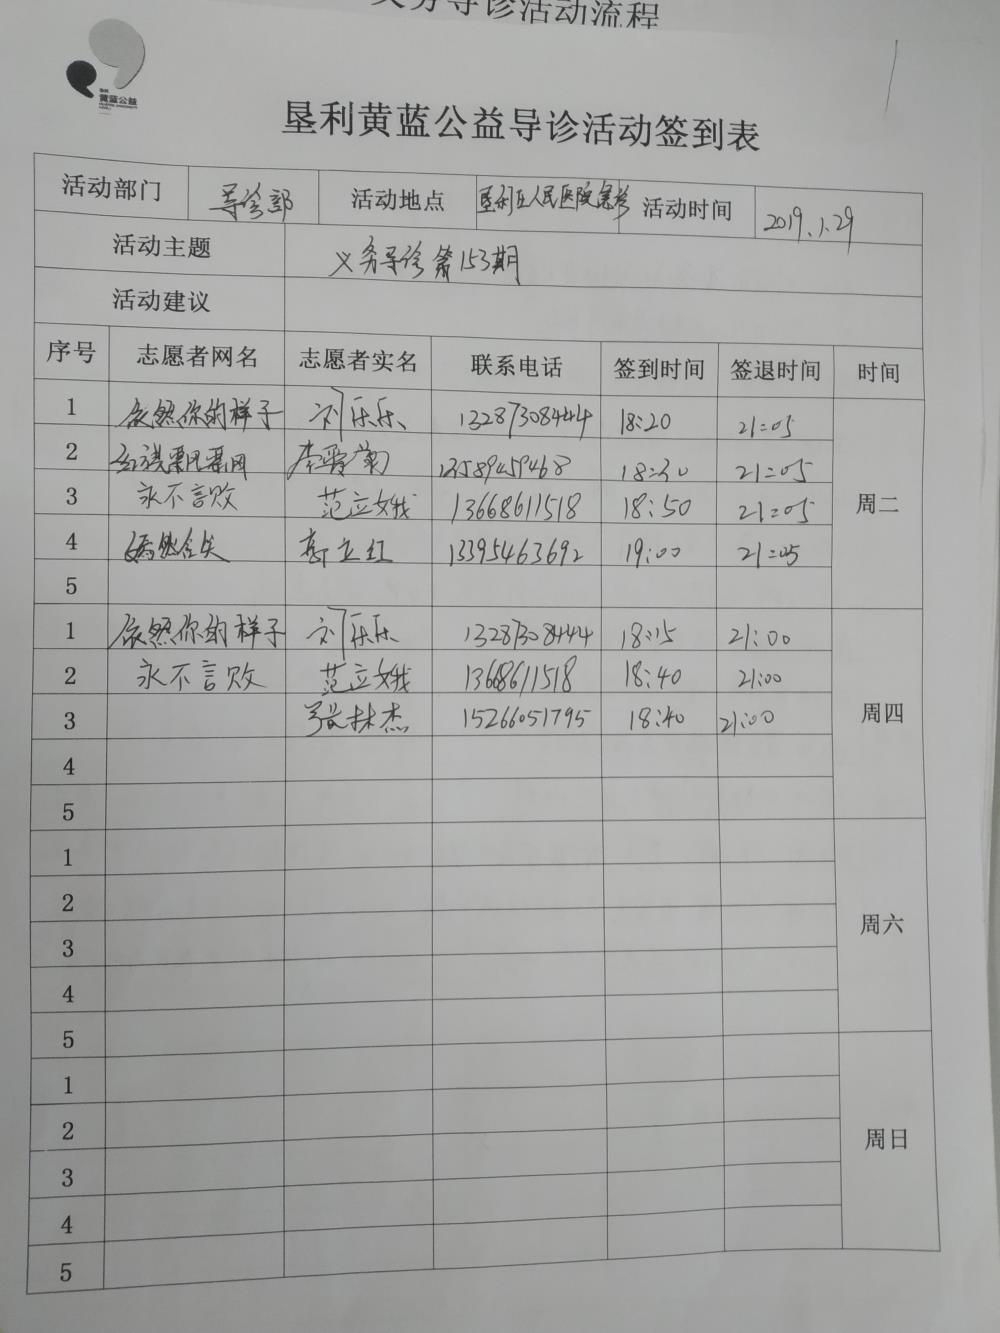 义务导诊活动流程
黄蓝公益
垦利黄蓝公益导诊活动签到表
活动部门 导诊部 活动地点 垦利区人民医院急诊 活动时间 2019.1.29
活动主题 义务导诊第153期
活动建议
序号 志愿者网名 志愿者实名 联系电话 签到时间 签退时间 时间
1 依然你的样子 刘乐乐 13287308444 18:20 21:05
2 李爱菊 13589459468 18:30 21:05
3 永不言败 范立娥 13668611518 18:50 21:05 周二
4 嫣然含笑 郭立红 13395463692 19:00 21:05
5
1 依然你的样子 刘乐乐 13287308444 18:15 21:00
2 永不言败 范立娥 13668611518 18:40 21:00
3 张林杰 15266051795 18:40 21:00 周四
4
5
1
2
3 周六
4
5
1
2 周日
3
4
5